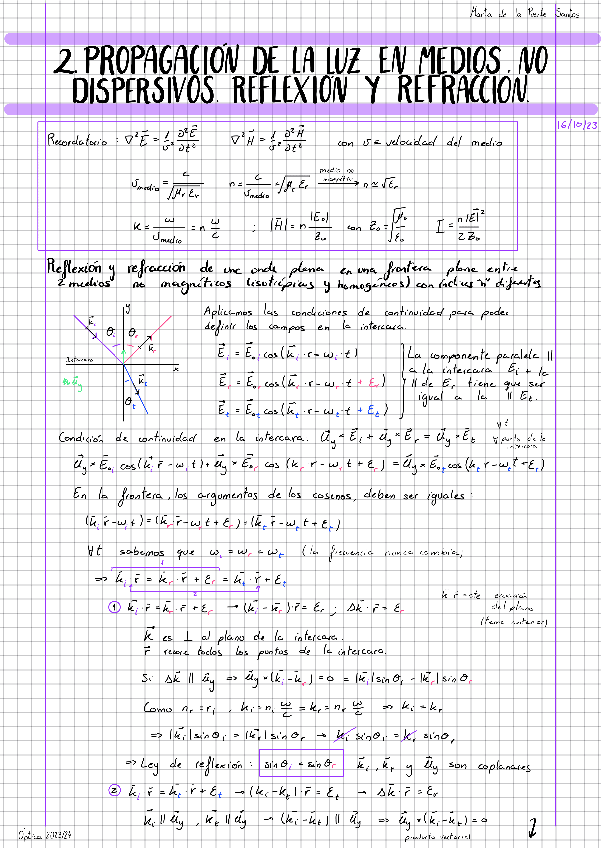 Marta de la Puente Santos
2. PROPAGACIÓN DE LA LUZ EN MEDIOS NO
DISPERSIVOS. REFLEXIÓN Y REFRACCIÓN.
16/10/23
Recordatorio: ∇²E⃗ = 1/v² ∂²E⃗/∂t²   ∇²H⃗ = 1/v² ∂²H⃗/∂t²   con v = velocidad del medio
v_medio = c/√(μ_r ε_r)   n = c/v_medio = √(μ_r ε_r) → medio no magnético → n ≃ √ε_r
K = ω/v_medio = n ω/c ; |H⃗| = n |E₀|/Z₀ con Z₀ = √(μ₀/ε₀)   I = n|E⃗|²/2Z₀
Reflexión y refracción de una onda plana en una frontera plana entre
2 medios no magnéticos (isotrópicos y homogéneos) con índices "n" diferentes
y
k⃗_i θ_i θ_r k⃗_r
Intercara x
k⃗_t
θ_t
Aplicamos las condiciones de continuidad para poder
definir los campos en la intercara.
E⃗_i = E⃗_oi cos(k⃗_i · r - ω_i · t)
E⃗_r = E⃗_or cos(k⃗_r · r - ω_r · t + ε_r)
E⃗_t = E⃗_ot cos(k⃗_t · r - ω_t · t + ε_t)
La componente paralela ||
a la intercara E_i + la
|| de E_r tiene que ser
igual a la || E_t.
Condición de continuidad en la intercara. u⃗_y × E⃗_i + u⃗_y × E⃗_r = u⃗_y × E⃗_t
∀t
∀ punto de la intercara
u⃗_y × E⃗_oi cos(k⃗_i r⃗ - ω_i t) + u⃗_y × E⃗_or cos(k_r r - ω_r t + ε_r) = u⃗_y × E⃗_ot cos(k_t r - ω_t t + ε_t)
En la frontera, los argumentos de los cosenos, deben ser iguales:
(k⃗_i r⃗ - ω_i t) = (k⃗_r r⃗ - ω_r t + ε_r) = (k⃗_t r⃗ - ω_t t + ε_t)
∀t sabemos que ω_i = ω_r = ω_t (la frecuencia nunca cambia)
1
⇒ k⃗_i · r⃗ = k⃗_r · r⃗ + ε_r = k⃗_t · r⃗ + ε_t
2
k r = cte ecuación
del plano
(tema anterior)
① k⃗_i · r⃗ = k⃗_r · r⃗ + ε_r → (k⃗_i - k⃗_r) · r⃗ = ε_r ; Δk⃗ · r⃗ = ε_r
k⃗ es ⊥ al plano de la intercara.
r⃗ recorre todos los puntos de la intercara.
Si Δk⃗ || u⃗_y ⇒ u⃗_y × (k⃗_i - k⃗_r) = 0 = |k⃗_i| sin θ_i - |k⃗_r| sin θ_r
Como n_r = n_i, k_i = n_i ω/c = k_r = n_r ω/c ⇒ k_i = k_r
⇒ |k⃗_i| sin θ_i = |k⃗_r| sin θ_r → k_i sin θ_i = k_r sin θ_r
⇒ Ley de reflexión: sin θ_i = sin θ_r   k⃗_i, k⃗_r y u⃗_y son coplanares
② k⃗_i r⃗ = k⃗_t · r⃗ + ε_t → (k_i - k_t) · r⃗ = ε_t → Δk⃗ · r⃗ = ε_r
k⃗_i || u⃗_y, k⃗_t || u⃗_y → (k⃗_i - k⃗_t) || u⃗_y ⇒ u⃗_y × (k⃗_i - k⃗_t) = 0
producto vectorial
Óptica 2023/24